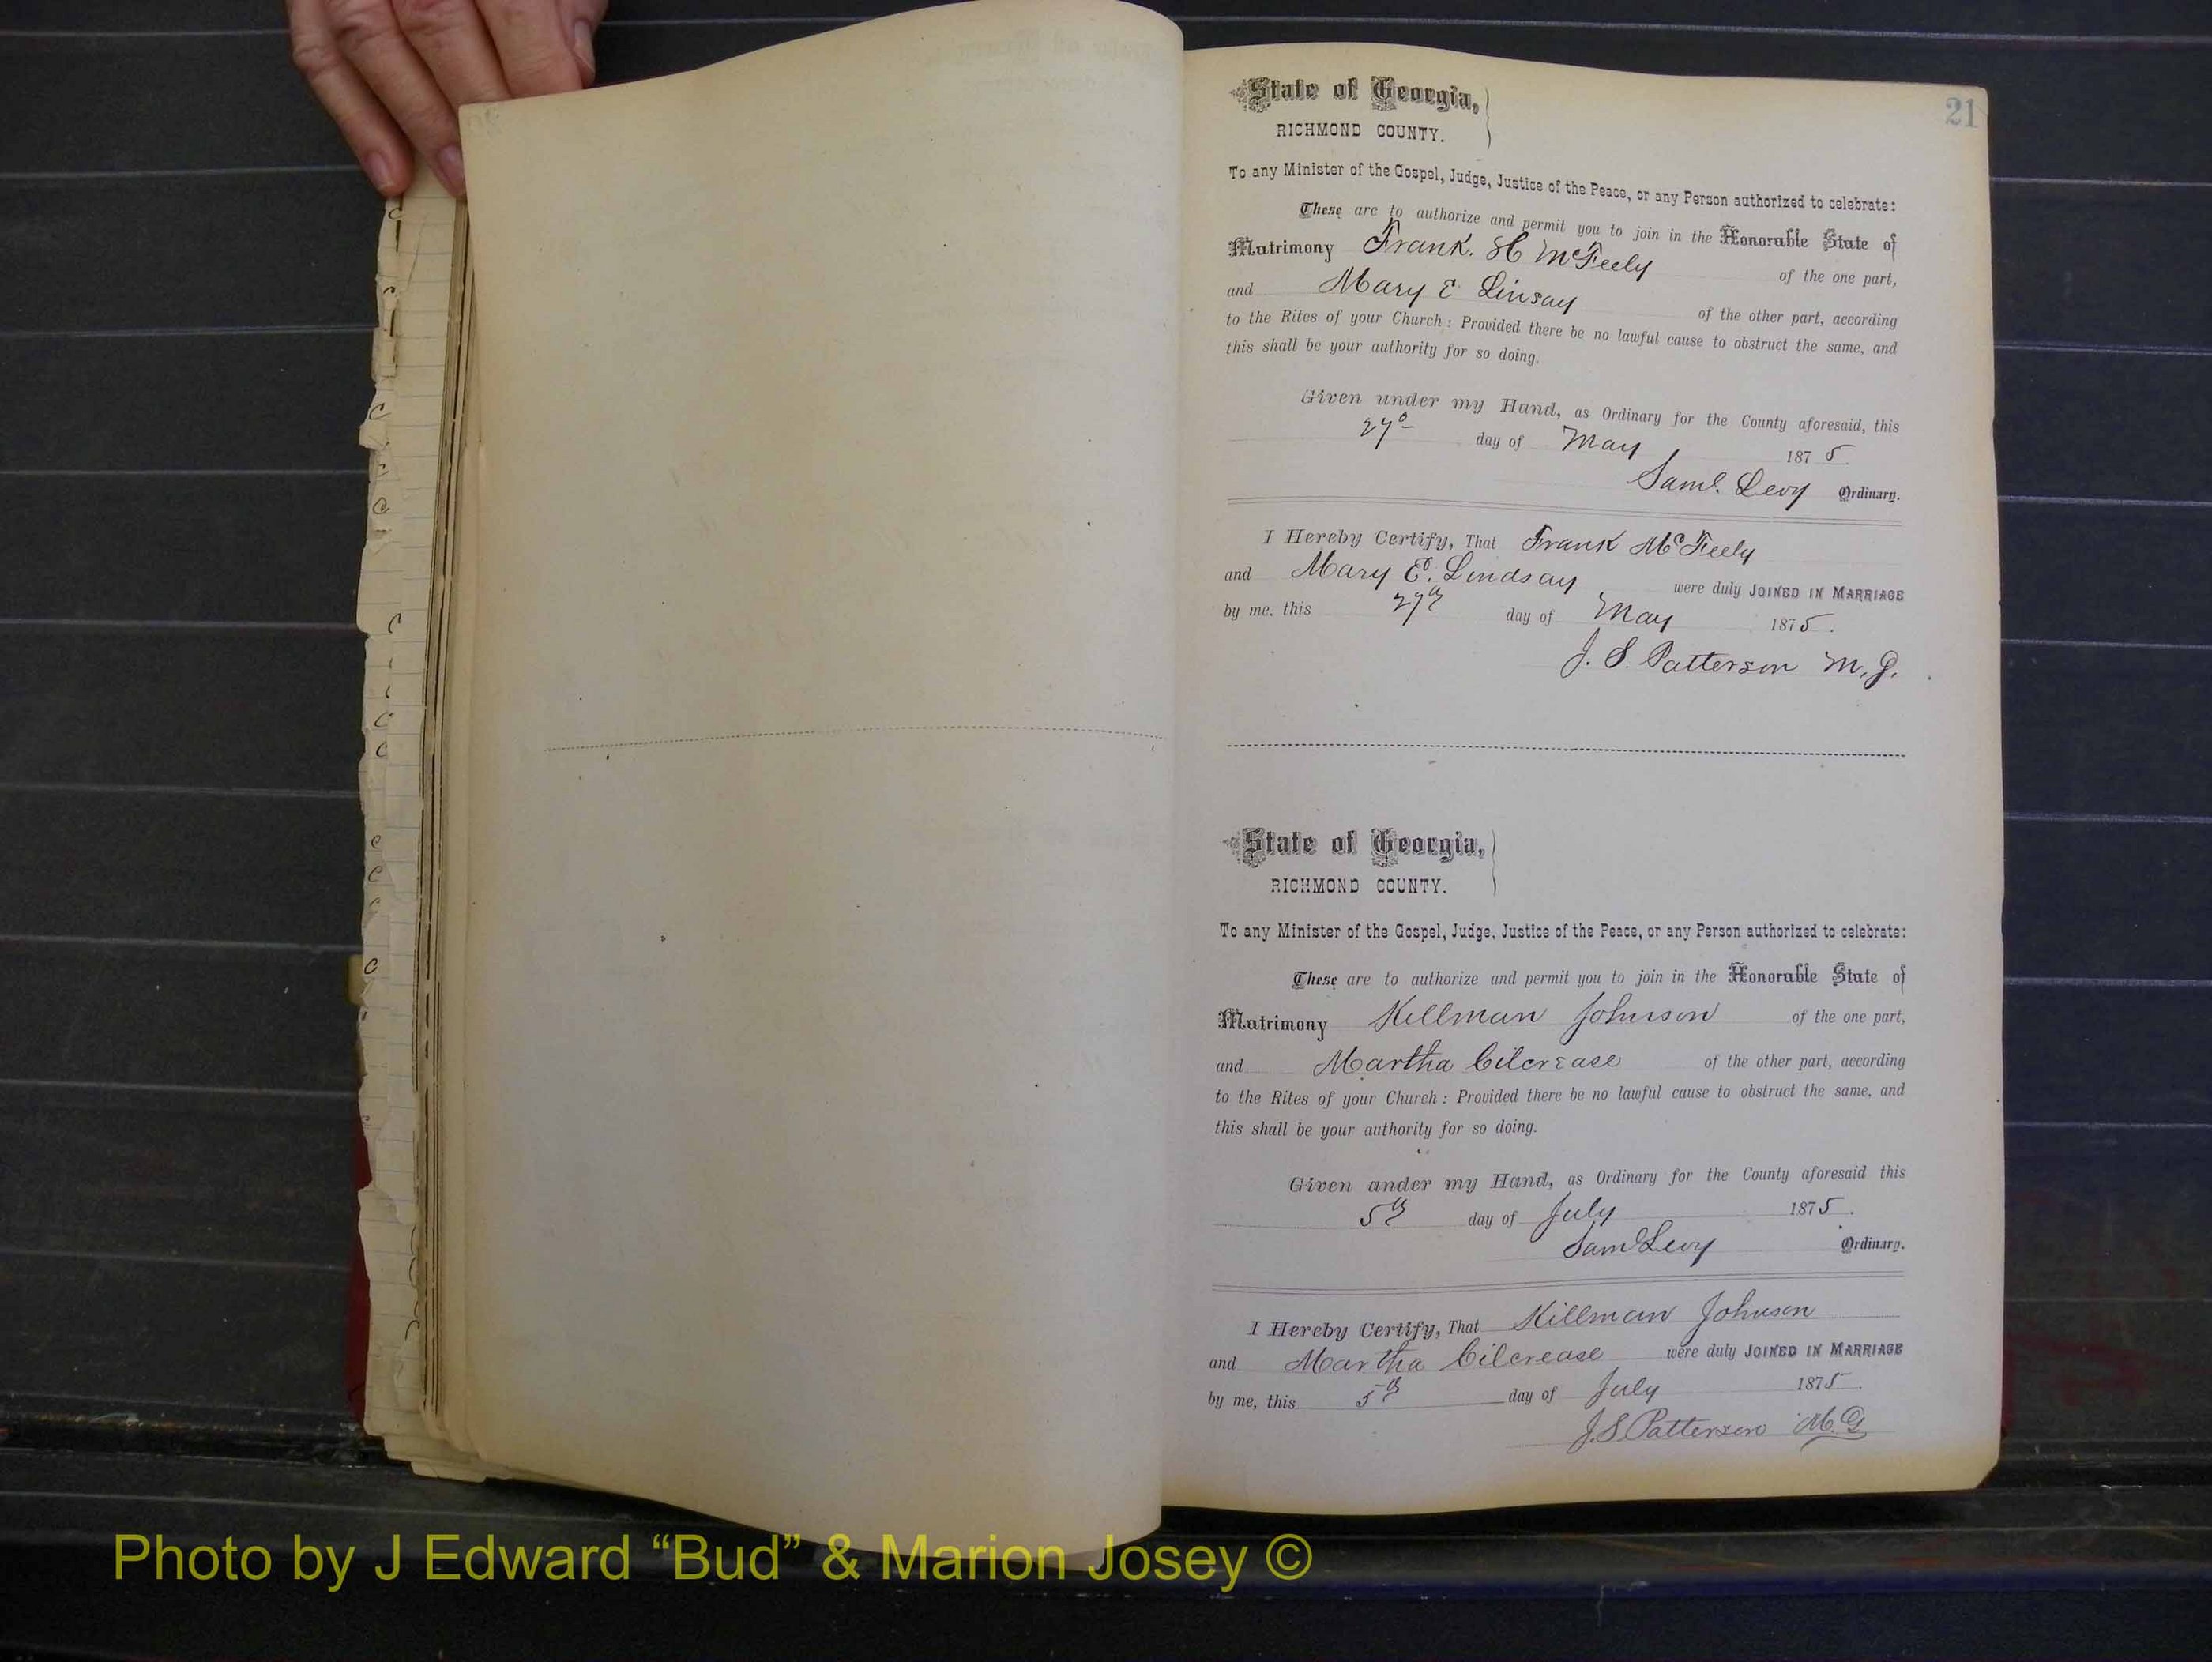 21
State of Georgia,
RICHMOND COUNTY.
To any Minister of the Gospel, Judge, Justice of the Peace, or any Person authorized to celebrate:
These are to authorize and permit you to join in the Honorable State of
Matrimony Frank. H McFeely of the one part,
and Mary E Linsay of the other part, according
to the Rites of your Church: Provided there be no lawful cause to obstruct the same, and
this shall be your authority for so doing.
Given under my Hand, as Ordinary for the County aforesaid, this
27th day of May 1875
Saml. Levy Ordinary.
I Hereby Certify, That Frank McFeely
and Mary E. Lindsay were duly JOINED IN MARRIAGE
by me, this 27th day of May 1875.
J. S. Patterson M. G.
State of Georgia,
RICHMOND COUNTY.
To any Minister of the Gospel, Judge, Justice of the Peace, or any Person authorized to celebrate:
These are to authorize and permit you to join in the Honorable State of
Matrimony Killman Johnson of the one part,
and Martha Cilcrease of the other part, according
to the Rites of your Church: Provided there be no lawful cause to obstruct the same, and
this shall be your authority for so doing.
Given under my Hand, as Ordinary for the County aforesaid this
5th day of July 1875.
Saml Levy Ordinary.
I Hereby Certify, That Killman Johnson
and Martha Cilcrease were duly JOINED IN MARRIAGE
by me, this 5th day of July 1875.
J. S. Patterson M. G
Photo by J Edward “Bud” & Marion Josey ©